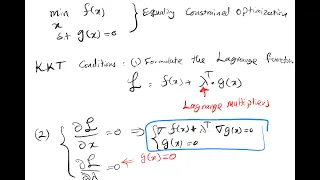 min f(x) } Equality Constrained Optimization
x
s.t g(x) = 0
KKT Conditions : (1) Formulate the Lagrange function
ℒ = f(x) + λᵀ. g(x)
Lagrange multipliers
(2) { ∂ℒ/∂x = 0 ⇒ { ∇f(x) + λᵀ ∇g(x) = 0
g(x) = 0
∂ℒ/∂λ = 0 ⇐ g(x) = 0